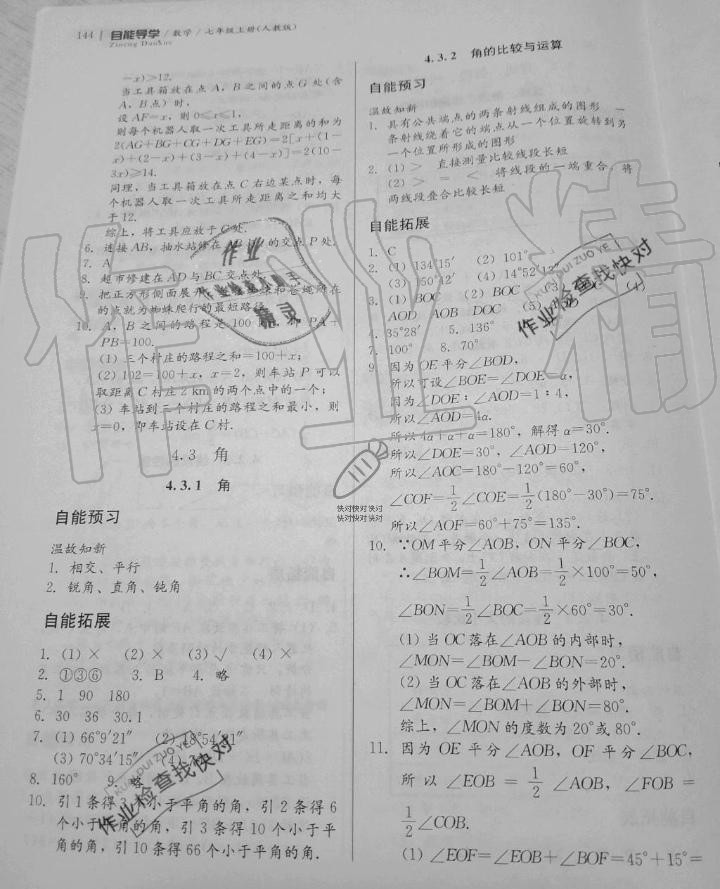 144 自能导学／数学／七年级上册(人教版)
Zineng Daoxue
－x)≥12.
当工具箱放在点 A，B 之间的点 G 处(含
A，B点)时，
设 AF＝x，则 0≤x≤1，
则每个机器人取一次工具所走距离的和为
2(AG＋BG＋CG＋DG＋EG)＝2[x＋(1－
x)＋(2－x)＋(3－x)＋(4－x)]＝2(10－
3x)≥14.
同理，当工具箱放在点 C 右边某点时，每
个机器人取一次工具所走距离之和均大
于 12.
综上，将工具应放于 C 处.
6. 连接 AB，抽水站修在 的交点 P 处.
7. A
8. 超市修建在 AD 与 BC 交点处.
9. 把正方形侧面展开， 和苍蝇所在
的点就为蜘蛛爬行的最短路径.
10. A，B 之间的路程是 100 PA＋
PB＝100.
(1) 三个村庄的路程之和＝100＋x；
(2) 102＝100＋x，x＝2，则车站 P 可以
取距离 C 村庄 2 km 的两个点中的一个；
(3) 车站到三个村庄的路程之和最小，则
x＝0，即车站设在 C 村.
4.3 角
4.3.1 角
自能预习
温故知新
1. 相交、平行
2. 锐角、直角、钝角
自能拓展
1. (1) × (2) × (3) √ (4) ×
2. ①③⑥ 3. B 4. 略
5. 1 90 180
6. 30 36 30.1
7. (1) 66°9′21″ (2) 18°54′21″
(3) 70°34′15″ (4)
8. 160° 9.
10. 引 1 条得 3 个小于平角的角，引 2 条得 6
个小于平角的角，引 3 条得 10 个小于平
角的角，引 10 条得 66 个小于平角的角.
4.3.2 角的比较与运算
自能预习
温故知新
1. 具有公共端点的两条射线组成的图形 一
条射线绕着它的端点从一个位置旋转到另
一个位置所形成的图形
2. (1) ＞ 直接测量比较线段长短
(2) ＞ ＝ ＜ 将线段的一端重合，将
两线段叠合比较长短
自能拓展
1. C
2. (1) 134°15′ (2) 101°
(3) 150°42′ (4) 14°52′12″
3. (1) BOC (2) BOC (3) (4)
AOD AOB DOC (5)
4. 35°28′ 5. 136°
7. 100° 8. 70°
9. 因为 OE 平分∠BOD，
所以可设∠BOE＝∠DOE＝α，
因为∠DOE∶∠AOD＝1∶4，
所以∠AOD＝4α.
所以 4α＋α＋α＝180°，解得 α＝30°.
所以∠DOE＝30°，∠AOD＝120°，
所以∠AOC＝180°－120°＝60°，
∠COF＝1/2∠COE＝1/2(180°－30°)＝75°.
所以∠AOF＝60°＋75°＝135°.
10. ∵OM 平分∠AOB，ON 平分∠BOC，
∴∠BOM＝1/2∠AOB＝1/2×100°＝50°，
∠BON＝1/2∠BOC＝1/2×60°＝30°.
(1) 当 OC 落在∠AOB 的内部时，
∠MON＝∠BOM－∠BON＝20°.
(2) 当 OC 落在∠AOB 的外部时，
∠MON＝∠BOM＋∠BON＝80°.
综上，∠MON 的度数为 20°或 80°.
11. 因为 OE 平分∠AOB，OF 平分∠BOC，
所以∠EOB＝1/2∠AOB，∠FOB＝
1/2∠COB.
(1) ∠EOF＝∠EOB＋∠BOF＝45°＋15°＝
快对快对快对
快对快对快对
作业精灵
作业
精灵
KUAI DUI ZUO YE
作业检查找快对
KUAI DUI ZUO YE
作业检查找快对